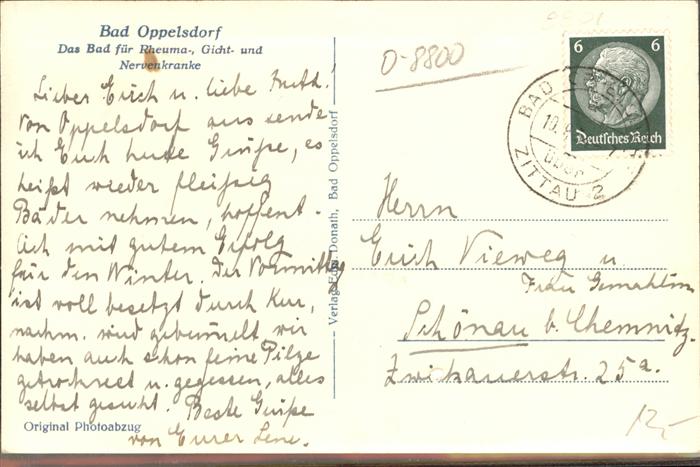 Bad Oppelsdorf
Das Bad für Rheuma-, Gicht- und
Nervenkranke
Lieber Erich u. liebe
von Oppelsdorf aus sende
ich Euch heute Grüße, es
heißt wieder fleißig
Bäder nehmen, hoffent-
lich mit gutem Erfolg
für den Winter. Der Vormittag
ist voll besetzt durch Kur,
nachm. wird gebummelt, wir
haben auch schon feine Pilze
getrocknet u. gegessen, alles
selbst gesucht. Beste Grüße
von Eurer Lene.
Original Photoabzug
Verlag Donath, Bad Oppelsdorf
O-8800
6 6
Deutsches Reich
BAD
ZITTAU 2
Herrn
Erich Vieweg u.
Frau Gemahlin
Schönau b. Chemnitz.
Zwickauerstr. 25a.
12,-